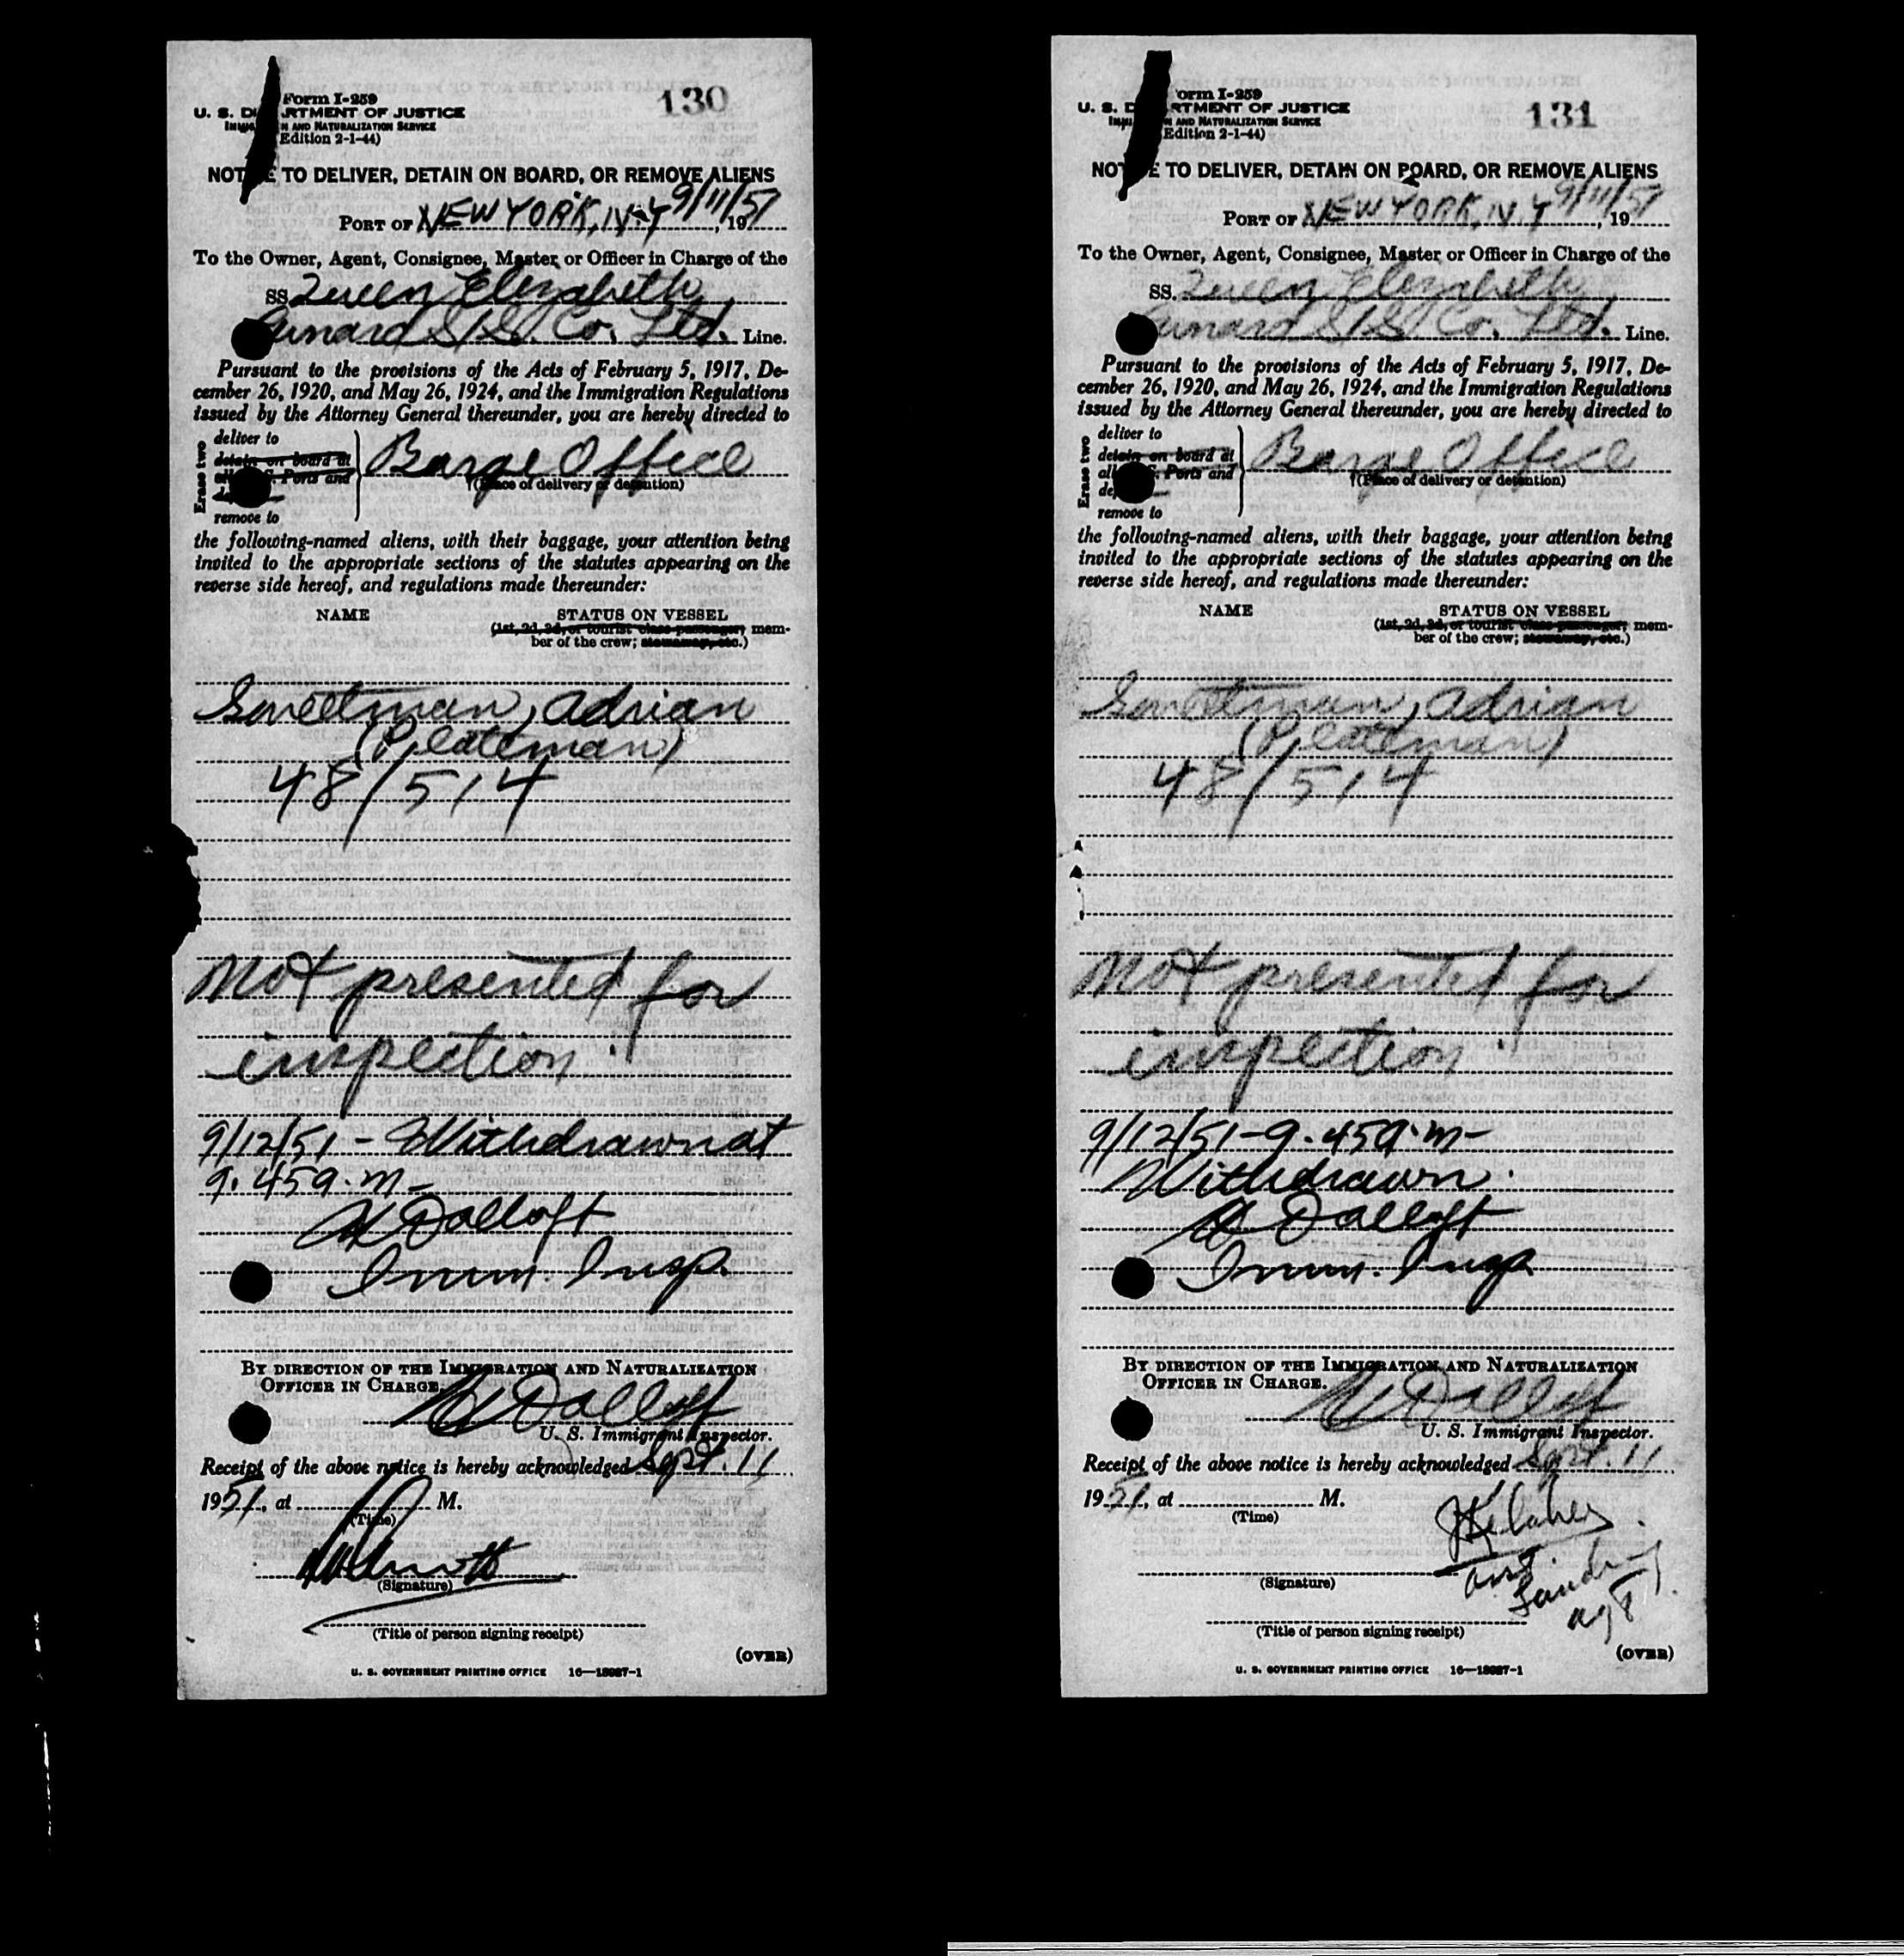 130
Form I-259
U. S. DEPARTMENT OF JUSTICE
IMMIGRATION AND NATURALIZATION SERVICE
(Edition 2-1-44)
NOTICE TO DELIVER, DETAIN ON BOARD, OR REMOVE ALIENS
PORT OF NEW YORK, N.Y 9/11/51, 19
To the Owner, Agent, Consignee, Master or Officer in Charge of the
SS Queen Elizabeth
Cunard S.S. Co. Ltd. Line.
Pursuant to the provisions of the Acts of February 5, 1917, De-
cember 26, 1920, and May 26, 1924, and the Immigration Regulations
issued by the Attorney General thereunder, you are hereby directed to
Erase two
deliver to
detain on board at
all U.S. Ports and
remove to
Barge Office
(Place of delivery or detention)
the following-named aliens, with their baggage, your attention being
invited to the appropriate sections of the statutes appearing on the
reverse side hereof, and regulations made thereunder:
NAME STATUS ON VESSEL
(1st, 2d, 3d, or tourist class passenger; mem-
ber of the crew; stowaway, etc.)
Sweetman, Adrian
(Plateman)
48/514
Not presented for
inspection.
9/12/51 - Withdrawn at
9.45 a.m -
Dalloft
Imm. Insp.
BY DIRECTION OF THE IMMIGRATION AND NATURALIZATION
OFFICER IN CHARGE.
Dalloft
U. S. Immigrant Inspector.
Receipt of the above notice is hereby acknowledged Sept. 11
1951, at M.
(Time)
(Signature)
(Title of person signing receipt)
(OVER)
U. S. GOVERNMENT PRINTING OFFICE 16—13987-1
131
Form I-259
U. S. DEPARTMENT OF JUSTICE
IMMIGRATION AND NATURALIZATION SERVICE
(Edition 2-1-44)
NOTICE TO DELIVER, DETAIN ON BOARD, OR REMOVE ALIENS
PORT OF NEW YORK, N.Y 9/11/51, 19
To the Owner, Agent, Consignee, Master or Officer in Charge of the
SS. Queen Elizabeth
Cunard S.S. Co. Ltd. Line.
Pursuant to the provisions of the Acts of February 5, 1917, De-
cember 26, 1920, and May 26, 1924, and the Immigration Regulations
issued by the Attorney General thereunder, you are hereby directed to
Erase two
deliver to
detain on board at
all U.S. Ports and
remove to
Barge Office
(Place of delivery or detention)
the following-named aliens, with their baggage, your attention being
invited to the appropriate sections of the statutes appearing on the
reverse side hereof, and regulations made thereunder:
NAME STATUS ON VESSEL
(1st, 2d, 3d, or tourist class passenger; mem-
ber of the crew; stowaway, etc.)
Sweetman, Adrian
(Plateman)
48/514
Not presented for
inspection.
9/12/51 - 9.45 a.m -
Withdrawn.
Dalloft
Imm. Insp.
BY DIRECTION OF THE IMMIGRATION AND NATURALIZATION
OFFICER IN CHARGE.
Dalloft
U. S. Immigrant Inspector.
Receipt of the above notice is hereby acknowledged Sept. 11
1951, at M.
(Time)
(Signature)
(Title of person signing receipt)
(OVER)
U. S. GOVERNMENT PRINTING OFFICE 16—13987-1